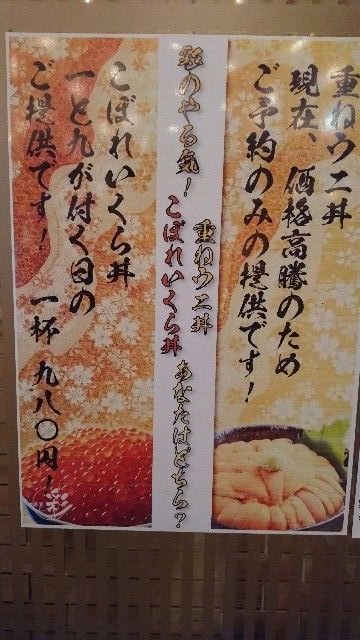 重ねウニ丼
現在、価格高騰のため
ご予約のみの提供です!
彩のやる気!
重ねウニ丼
こぼれいくら丼
あなたはどちら?
こぼれいくら丼
一と九が付く日の
ご提供です!
一杯 九八〇円!
彩